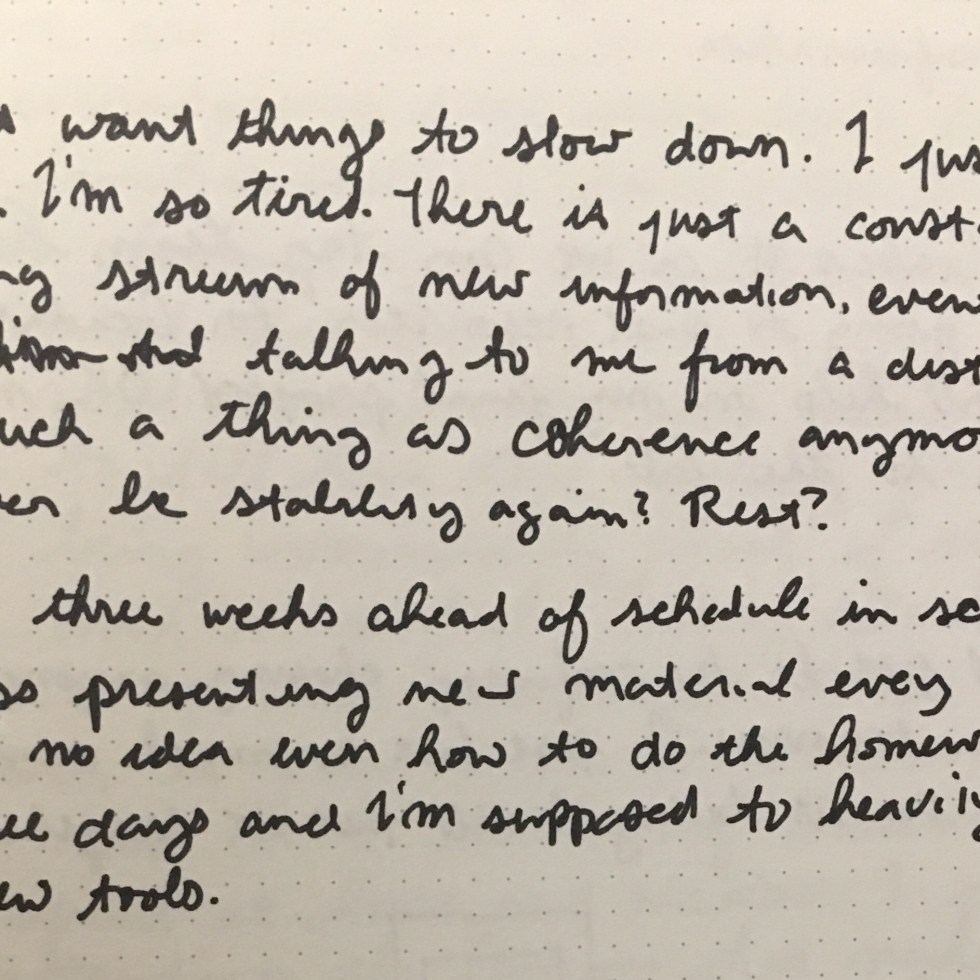 want things to slow down. I jus
. I'm so tired. There is just a consta
ng stream of new information, even
talking to me from a dist
uch a thing as coherence anymo
er be stability again? Rest?
three weeks ahead of schedule in se
so presenting new material evey
no idea even how to do the homew
ee days and I'm supposed to heavily
ew tools.